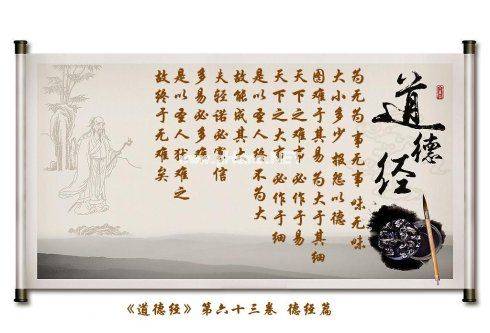 道德经
为无为 事无事 味无味
大小多少 报怨以德
图难于其易 为大于其细
天下之难事 必作于易
天下之大事 必作于细
是以圣人终不为大
故能成其大
夫轻诺必寡信
多易必多难
是以圣人犹难之
故终于无难矣
《道德经》第六十三卷 德经篇